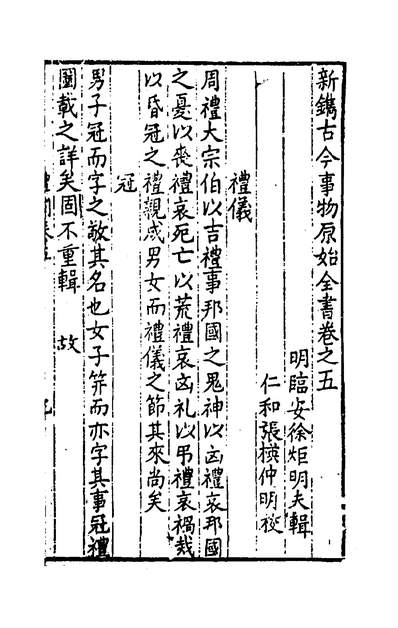 新鐫古今事物原始全書卷之五
明臨安徐炬明夫輯
仁和張 仲明校
禮儀
周禮大宗伯以吉禮事邦國之鬼神以凶禮哀邦國
之憂以喪禮哀死亡以荒禮哀凶礼以弔禮哀禍烖
以昏冠之禮親成男女而禮儀之節其來尚矣
冠
男子冠而字之敬其名也女子笄而亦字其事冠禮
圖載之詳矣固不重輯 故